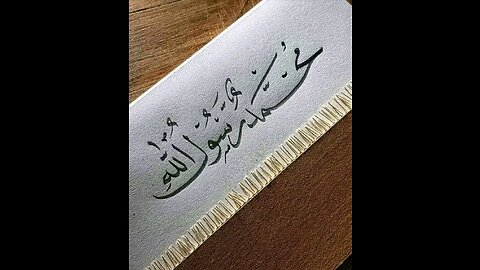 مُحَمَّد رَسُوْلُ اللهِ